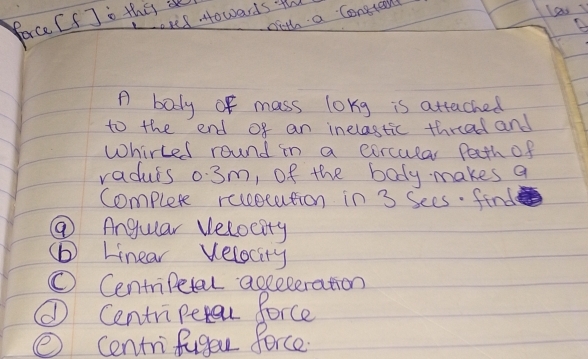 force [f] : this
towards the
with a constant
A body of mass 10kg is attached
to the end of an inelastic thread and
whirled round in a circular Path of
raduis 0.3m, of the body makes a
Complete revolution in 3 Secs. find
(a) Angular Velocity
(b) Linear Velocity
(c) Centripetal acceleration
(d) Centripetal force
(e) Centrifugal force.